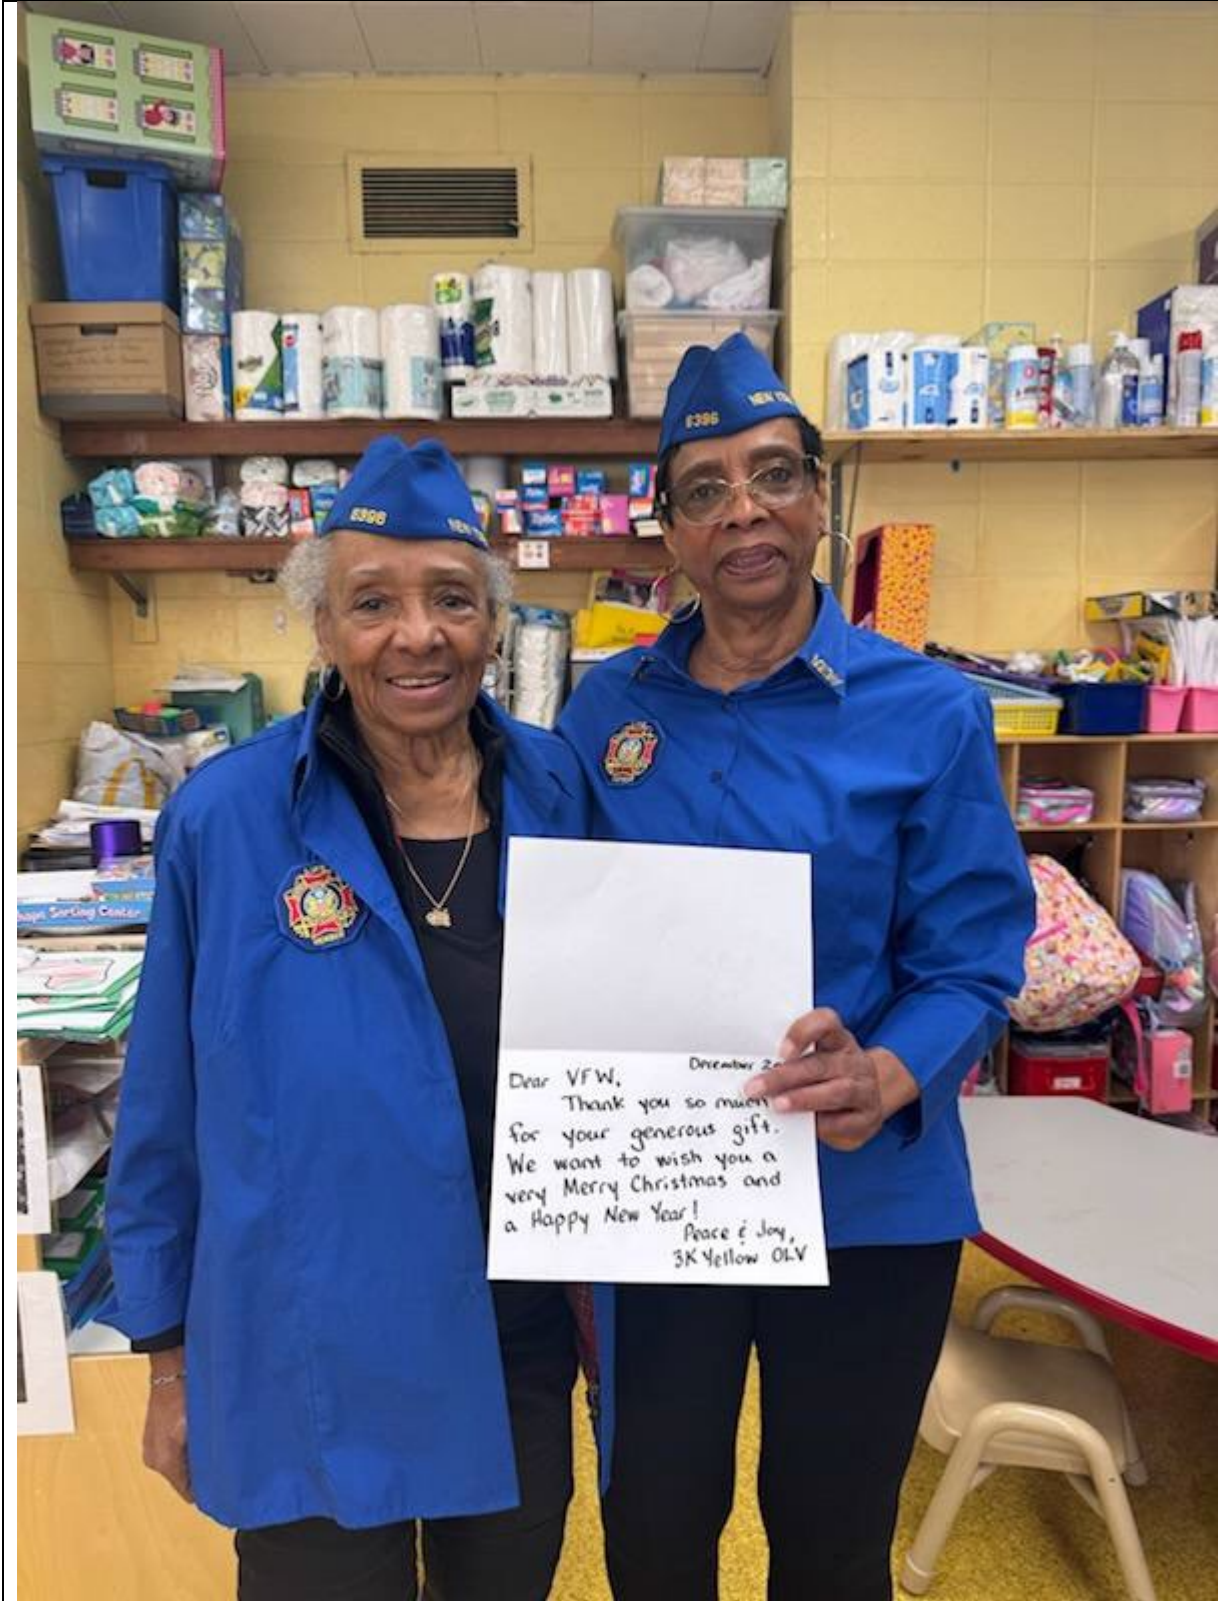 6396
NEW
6396
NEW
Shape Sorting Center
December
Dear VFW,
Thank you so much
for your generous gift.
We want to wish you a
very Merry Christmas and
a Happy New Year!
Peace & Joy,
3K Yellow OLV